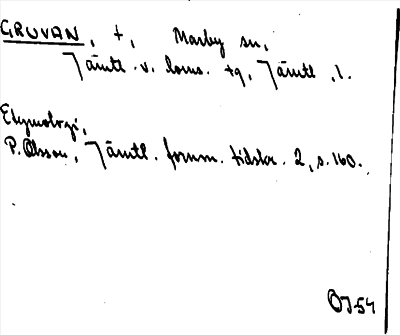 GRUVAN, †, Marby sn,
Jämtl. v. doms. tg, Jämtl. l.
Etymologi,
P. Olsson, Jämtl. fornm. tidskr. 2, s. 160.
OJ 54